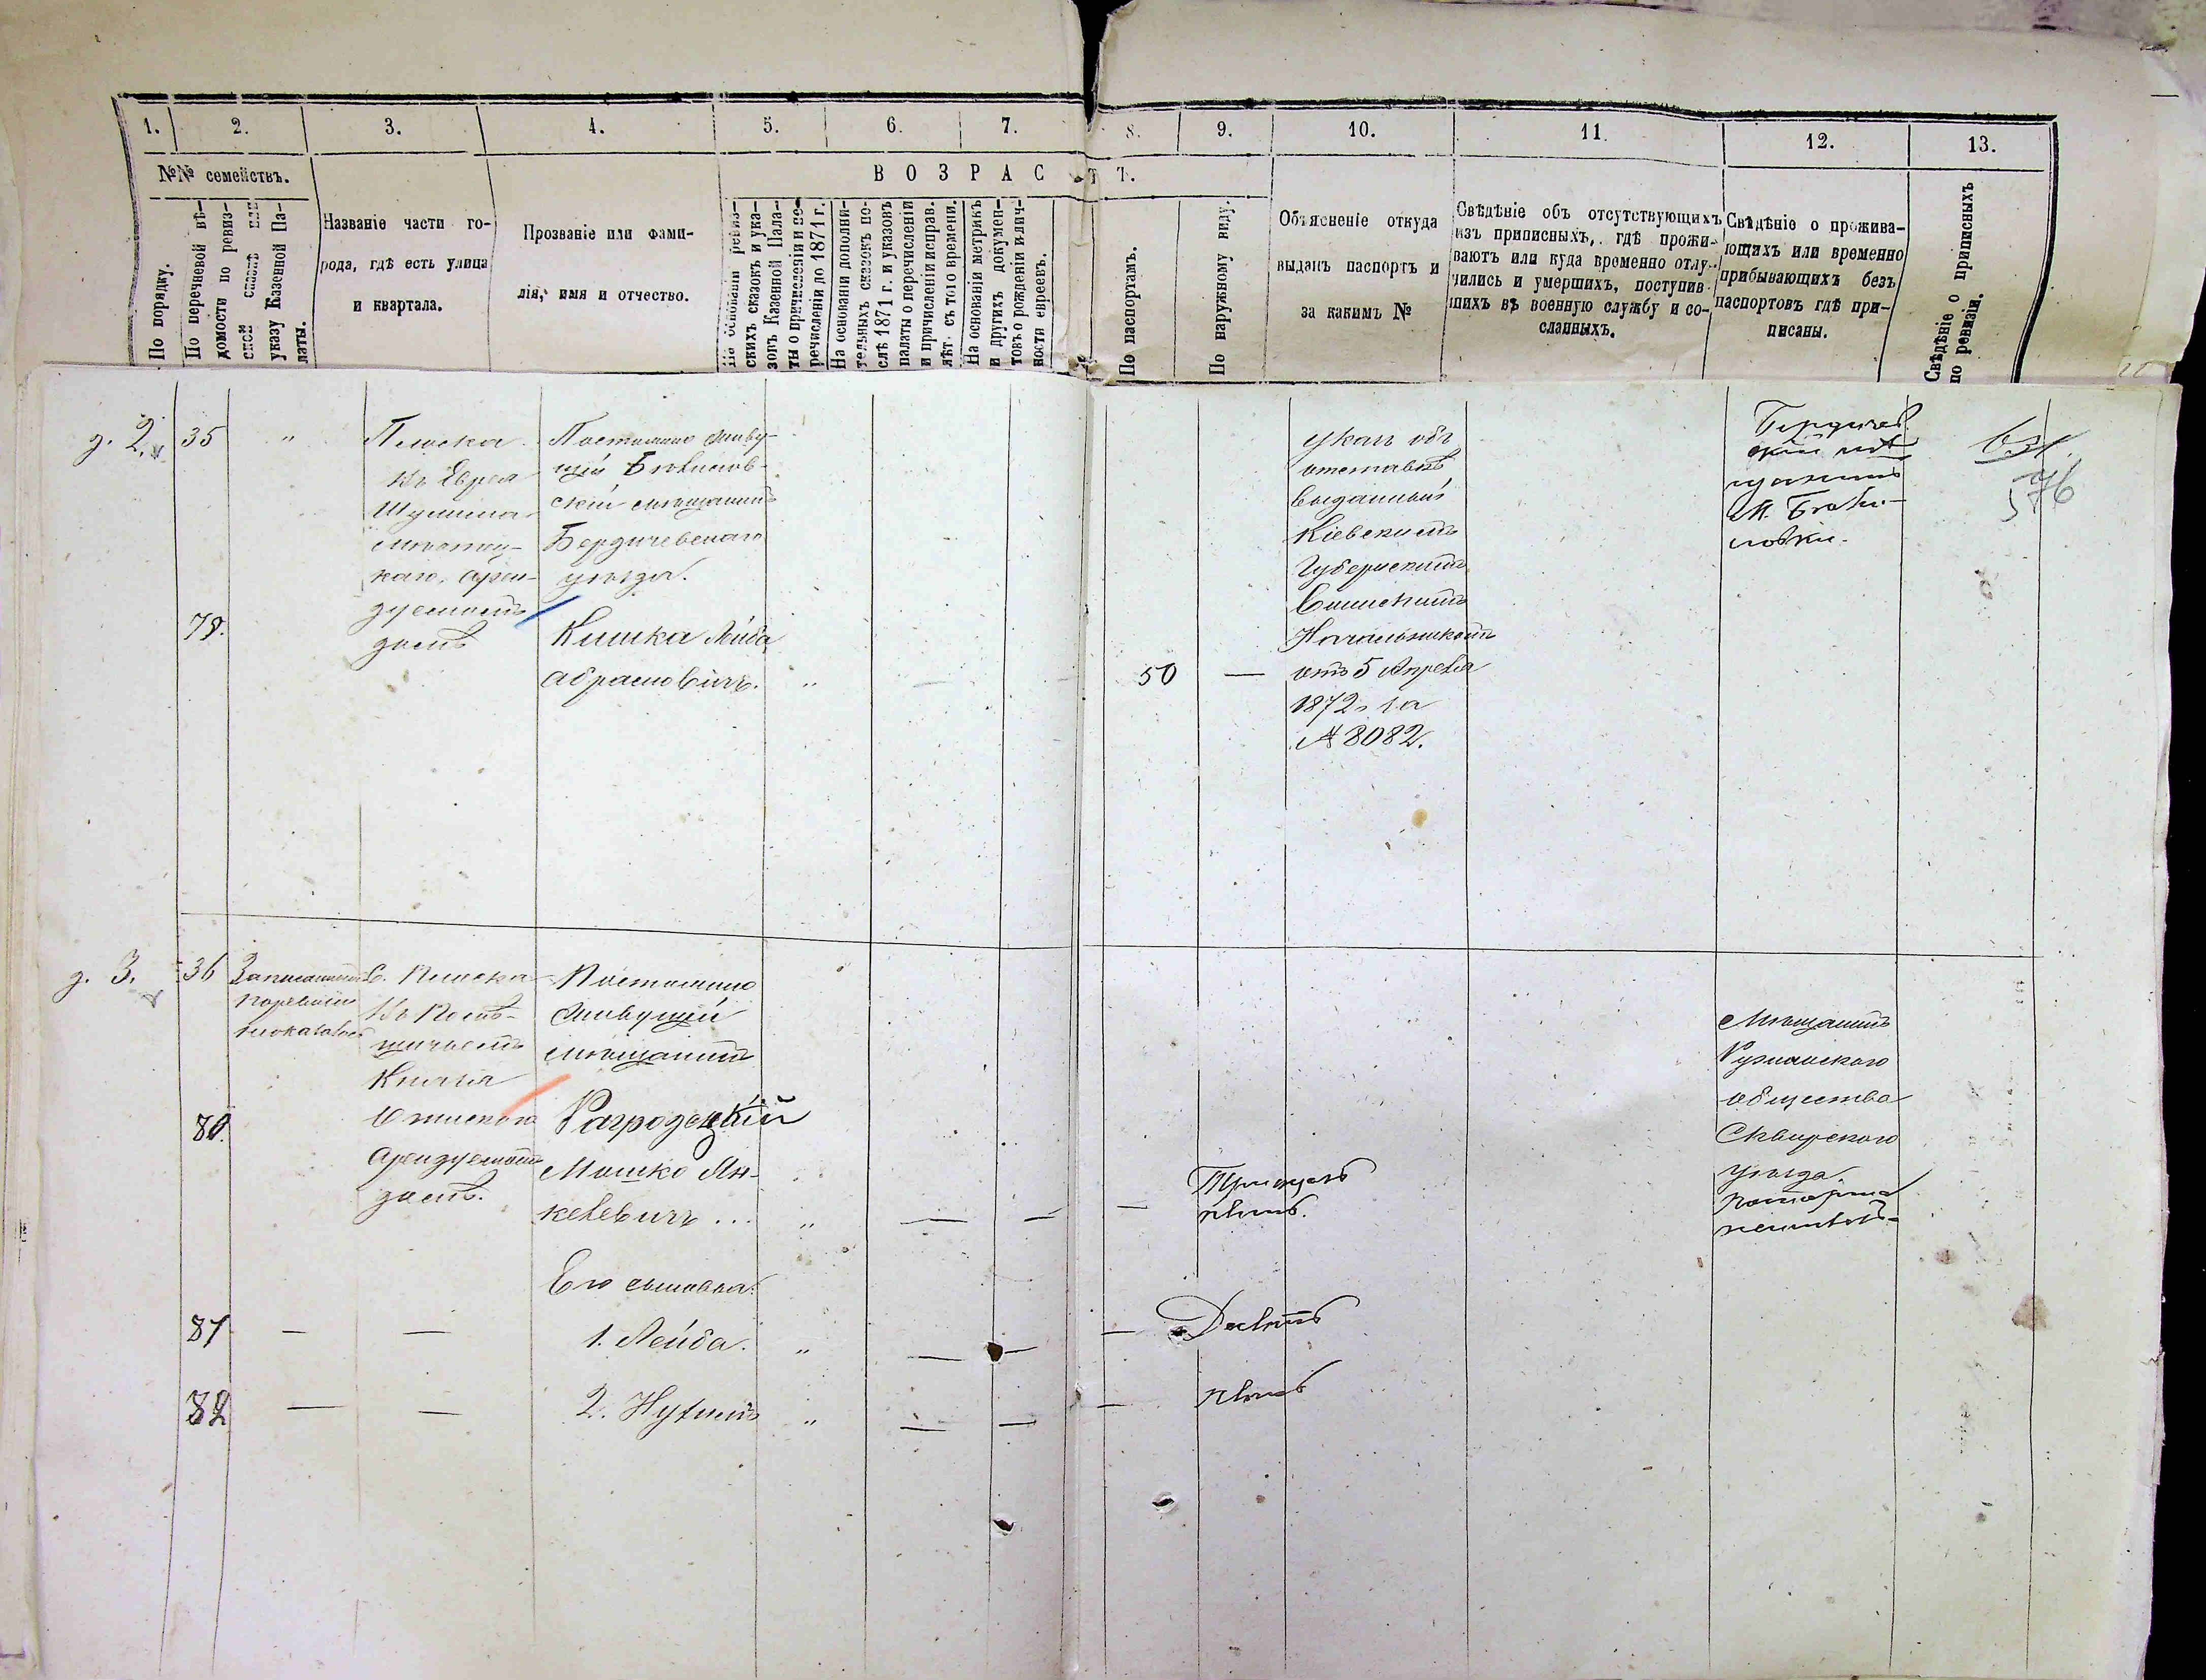 1. 2. 3. 4. 5. 6. 7. 8. 9. 10. 11. 12. 13.
№№ семействъ.
ВОЗРАСТЪ.
По порядку.
По перечневой вѣ-
домости по ревиз-
ской сказкѣ или
указу Казенной Па-
латы.
Названіе части го-
рода, гдѣ есть улица
и квартала.
Прозваніе или фами-
лія, имя и отчество.
На основаніи ревиз-
скихъ сказокъ и ука-
зовъ Казенной Пала-
ты о причисленіи и пе-
речисленіи до 1871 г.
На основаніи дополни-
тельныхъ сказокъ по-
слѣ 1871 г. и указовъ
палаты о перечисленіи
и причисленіи исправ.
лѣт. съ того времени.
На основаніи метрикъ
и другихъ докумен-
товъ о рожденіи и лич-
ности евреевъ.
По паспортамъ.
По наружному виду.
Объясненіе откуда
выданъ паспортъ и
за какимъ №
Свѣдѣніе объ отсутствующихъ
изъ приписныхъ, гдѣ прожи-
ваютъ или куда временно отлу-
чились и умершихъ, поступив-
шихъ въ военную службу и со-
сланныхъ.
Свѣдѣніе о прожива-
ющихъ или временно
прибывающихъ безъ
паспортовъ гдѣ при-
писаны.
Свѣдѣніе о приписныхъ
по ревизіи.
д. 2.
35
"
Плиска
въ Еврея
Шулима
арен-
дуемомъ
домѣ
Постоянно живу-
щій
скій мѣщанинъ
Бердичевскаго
уѣзда.
79.
Кишка Лейба
Абрамовичъ.
"
50
—
Указъ объ
отставкѣ
выданный
Кіевскимъ
Губернскимъ
Воинскимъ
Начальникомъ
отъ 5 Апрѣля
1872 за
№ 8082.
Бердичев
скій мѣ
щанинъ
М.
576
д. 3.
36
С. Плиска
въ Помѣ-
щичьемъ
Князя
арендуемомъ
домѣ.
Постоянно
живущій
мѣщанинъ
80.
Рагродецкій
Мошко Ян-
келевичъ ...
"
—
—
—
Тридцать
пять.
Мѣщанинъ
Ружинскаго
общества
Сквирскаго
уѣзда.
Его сыновья:
81
—
—
1. Лейба.
"
—
—
—
Десять
82
—
—
2. Нухимъ
"
—
—
—
пять